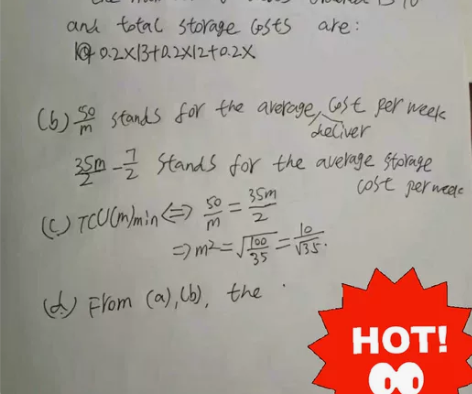 and total storage costs are:
0.2x13+0.2x12+0.2x
(b) 50/m stands for the average deliver cost per week
35m/2 - 7/2 stands for the average storage
cost per week
(c) TCU(m)min ⇔ 50/m = 35m/2
⇒ m² = √(100/35) = 10/√35.
(d) From (a), (b), the
HOT!